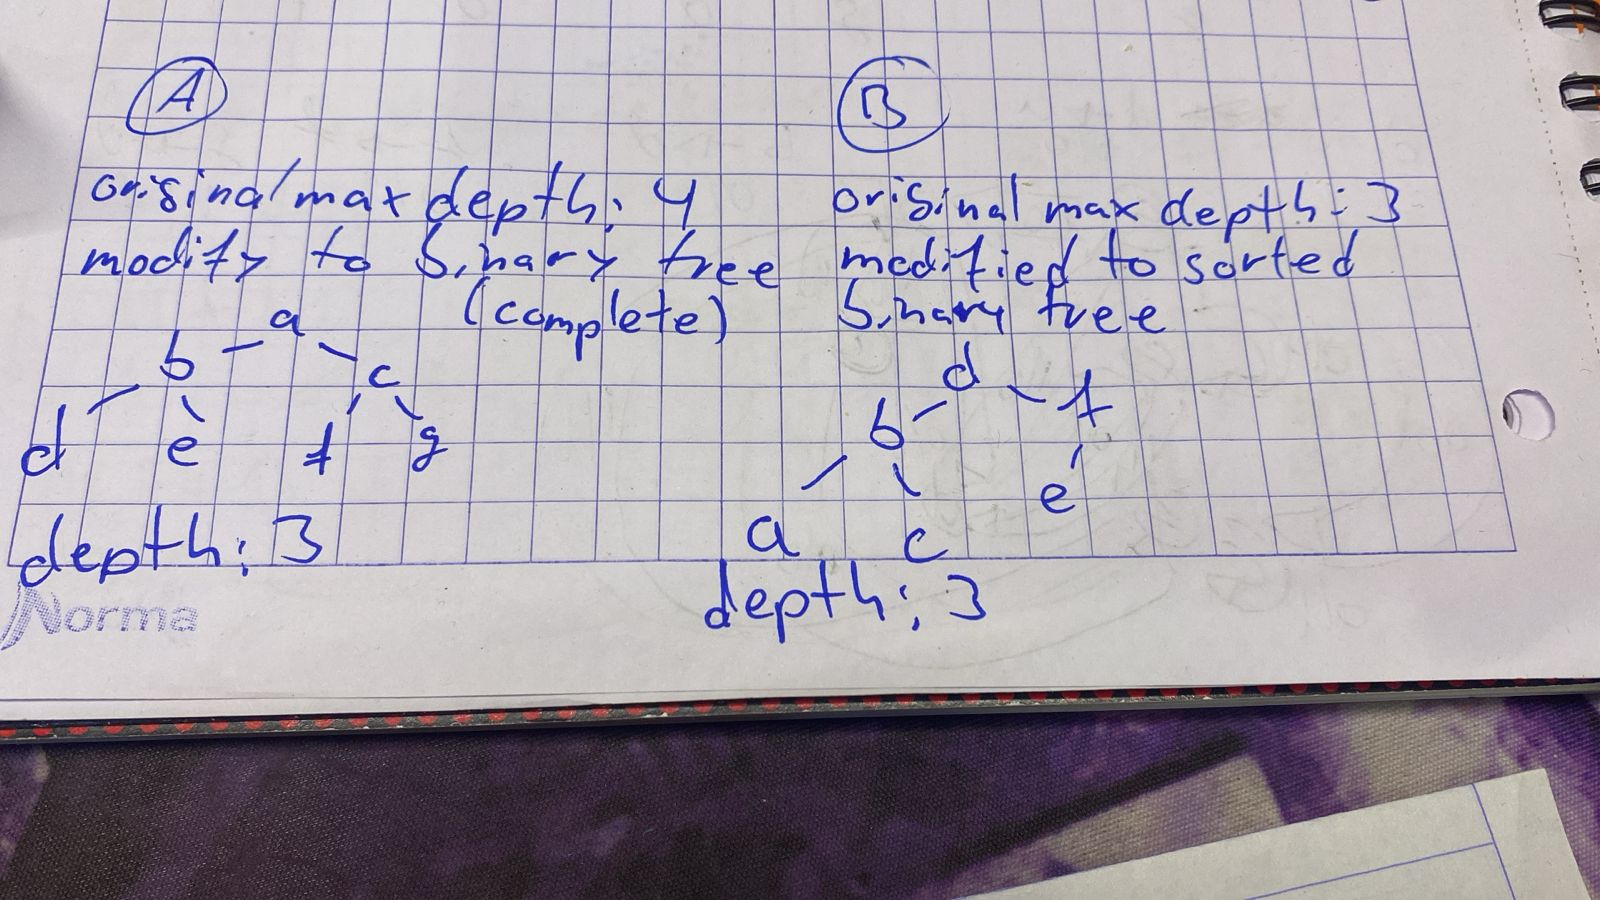 A
original max depth: 4
modify to binary tree
(complete)
a
b c
d e f g
depth: 3
Norma
B
original max depth: 3
modified to sorted
binary tree
d
b f
a c e
depth: 3